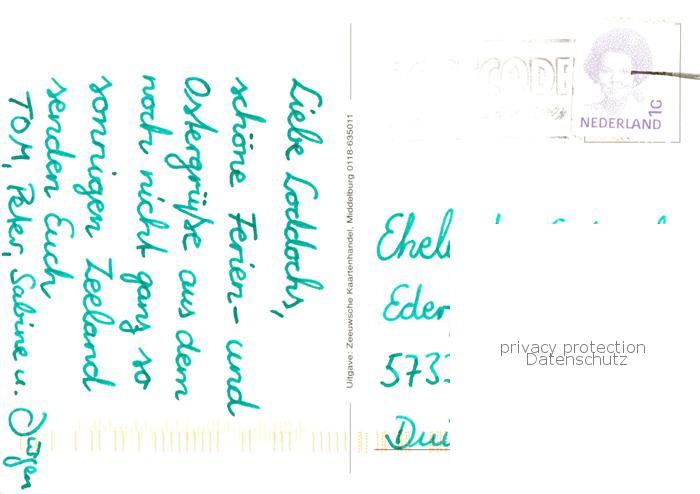 Liebe Loddochs,
schöne Ferien- und
Ostergrüße aus dem
noch nicht ganz so
sonnigen Zeeland
senden Euch
TOM, Peter, Sabine u. Jürgen
Uitgave: Zeeuwsche Kaartenhandel, Middelburg 0118-635011
POSTCODE
NEDERLAND
1G
privacy protection
Datenschutz